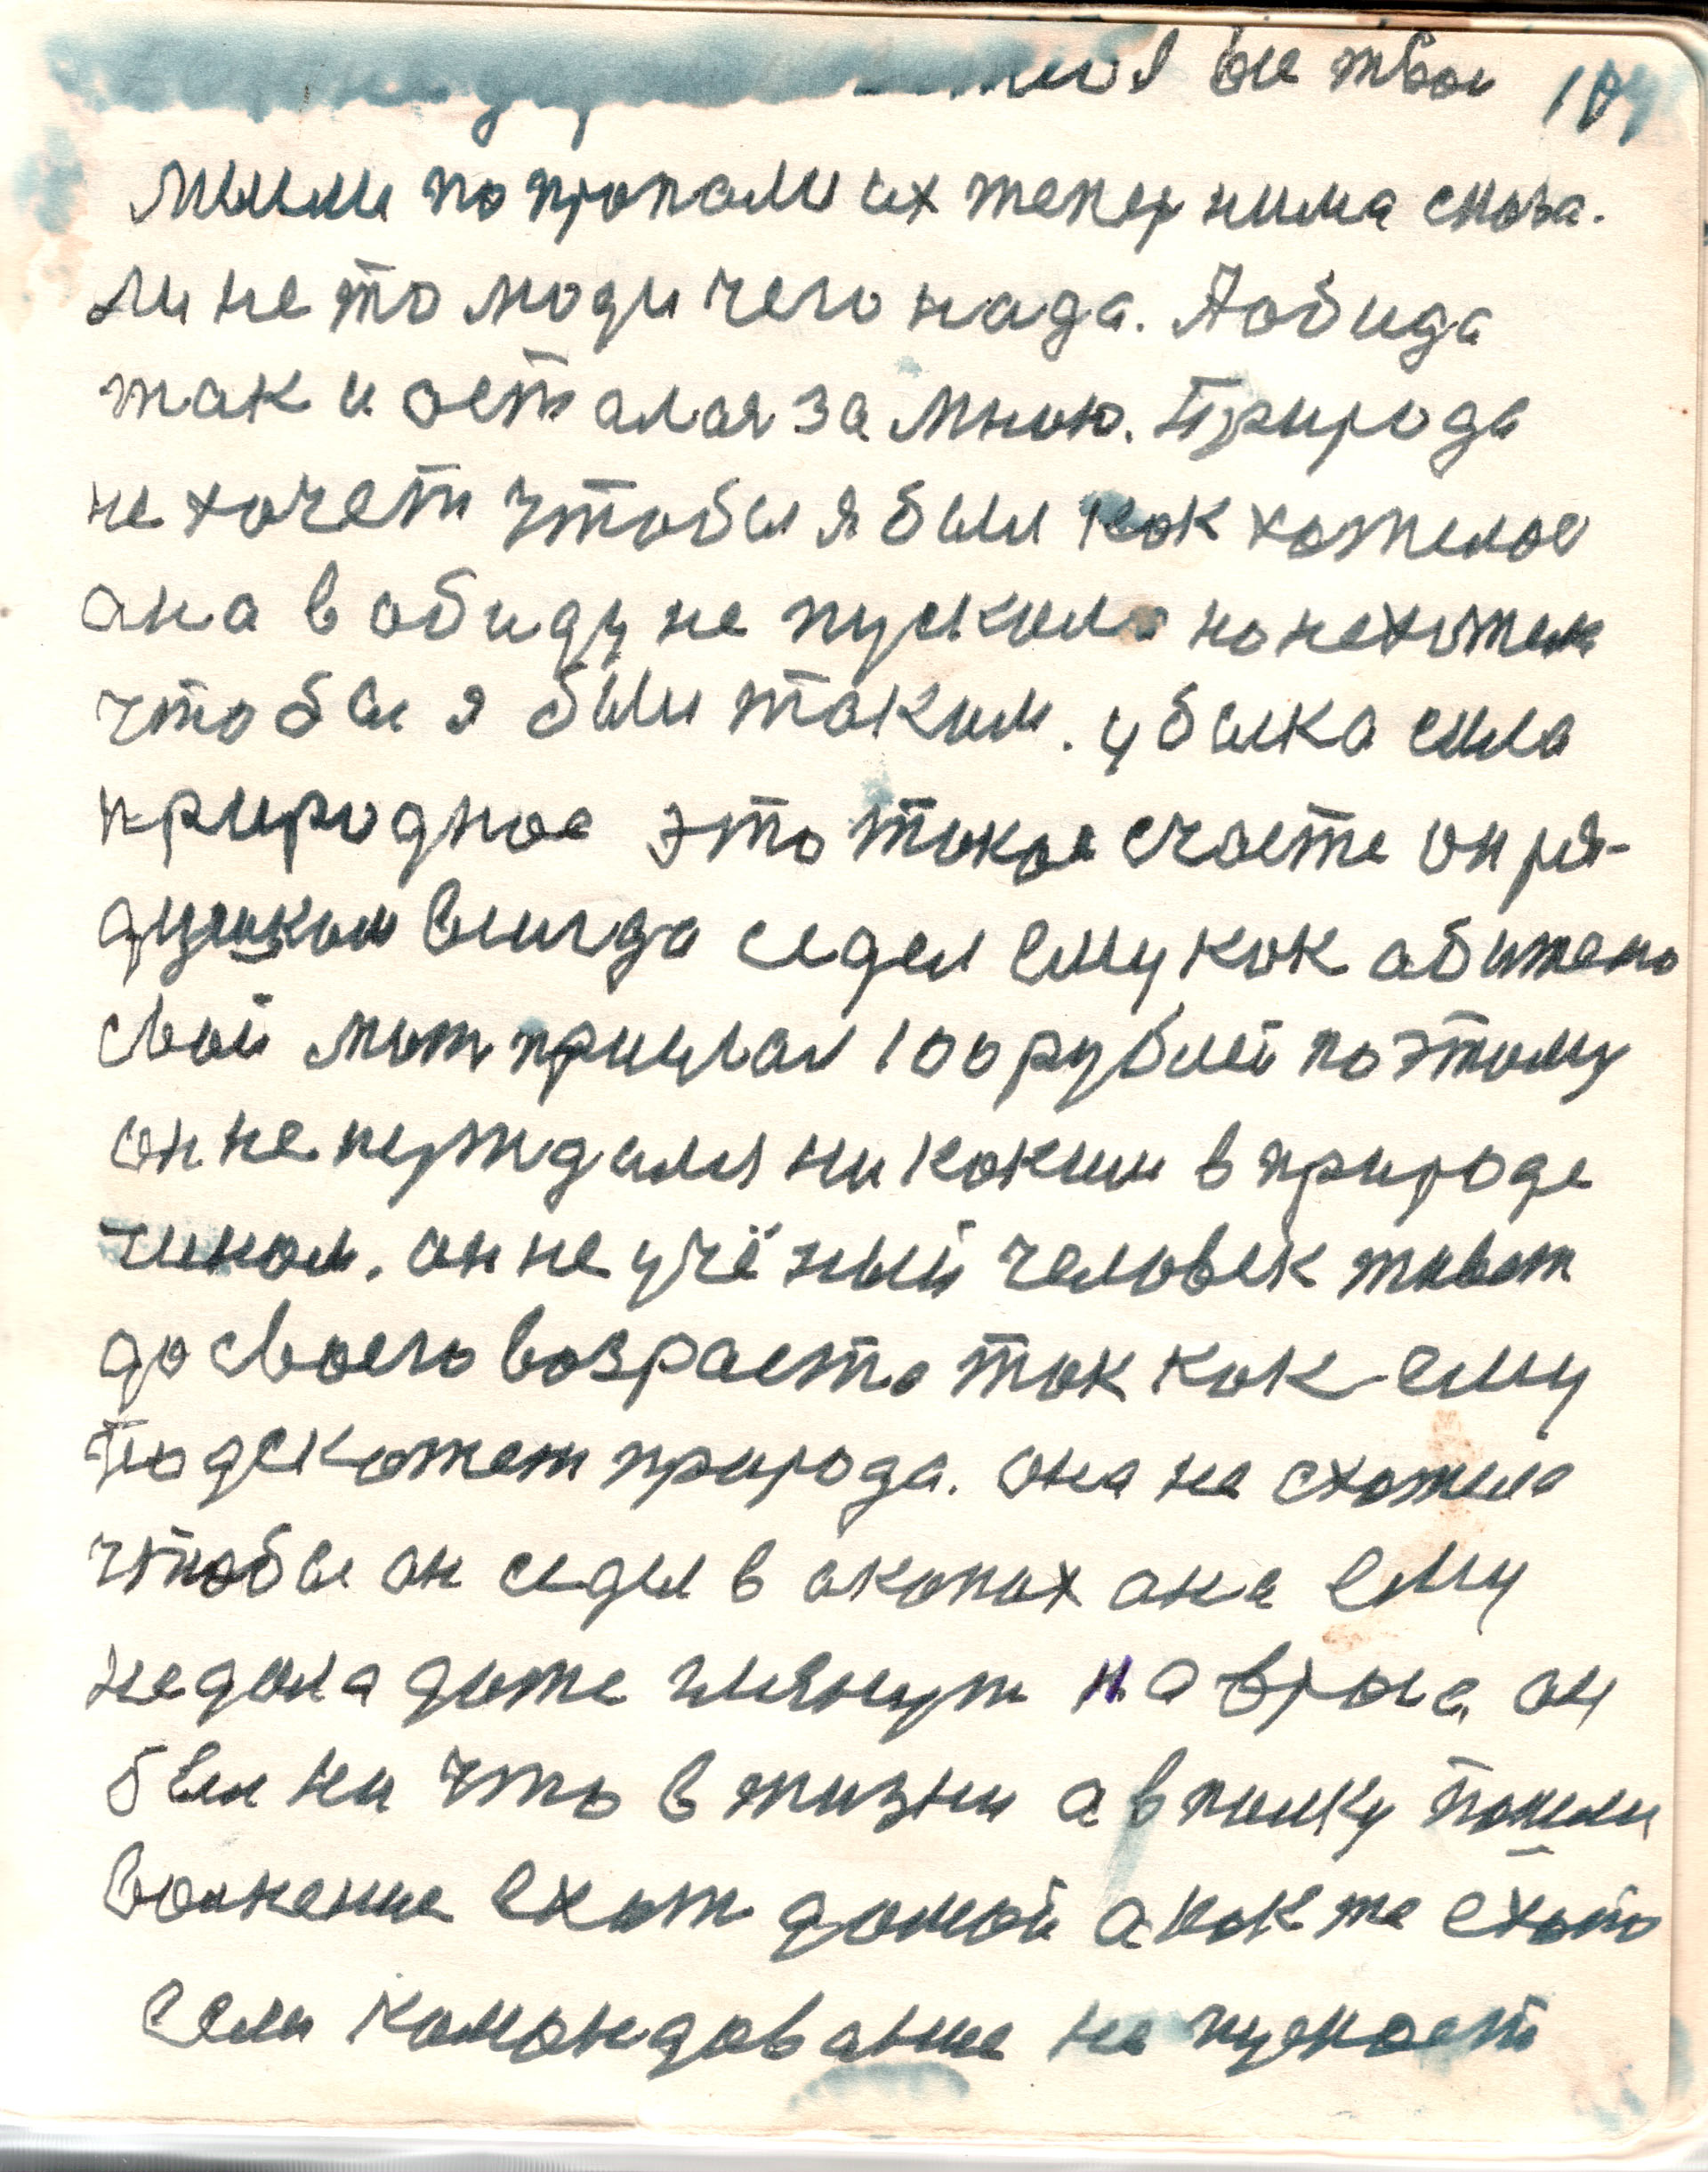 все твои 104
мыли попропали их тепер нима снова.
ли не то люди чего нада. А обида
так и осталася за мною. Природа
не хочет чтобы я был как хотелос
ана в обиду не пускала но не хотела
чтобы я был таким. у быка сила
природное это такое счасте он ря-
душком всигда седел ему как абижено
свой мат прислал 100 рублей поэтому
он не нуждался ни каким в природе
чином. он не учёный человек живет
до своего возраста так как ему
подскажет природа. она не схотела
чтобы он седел в акопах ана ему
не дала даже глянут на врага он
был ни что в жизни а в полку пошли
волнение ехат домой а как же ехат
если командование не пускает